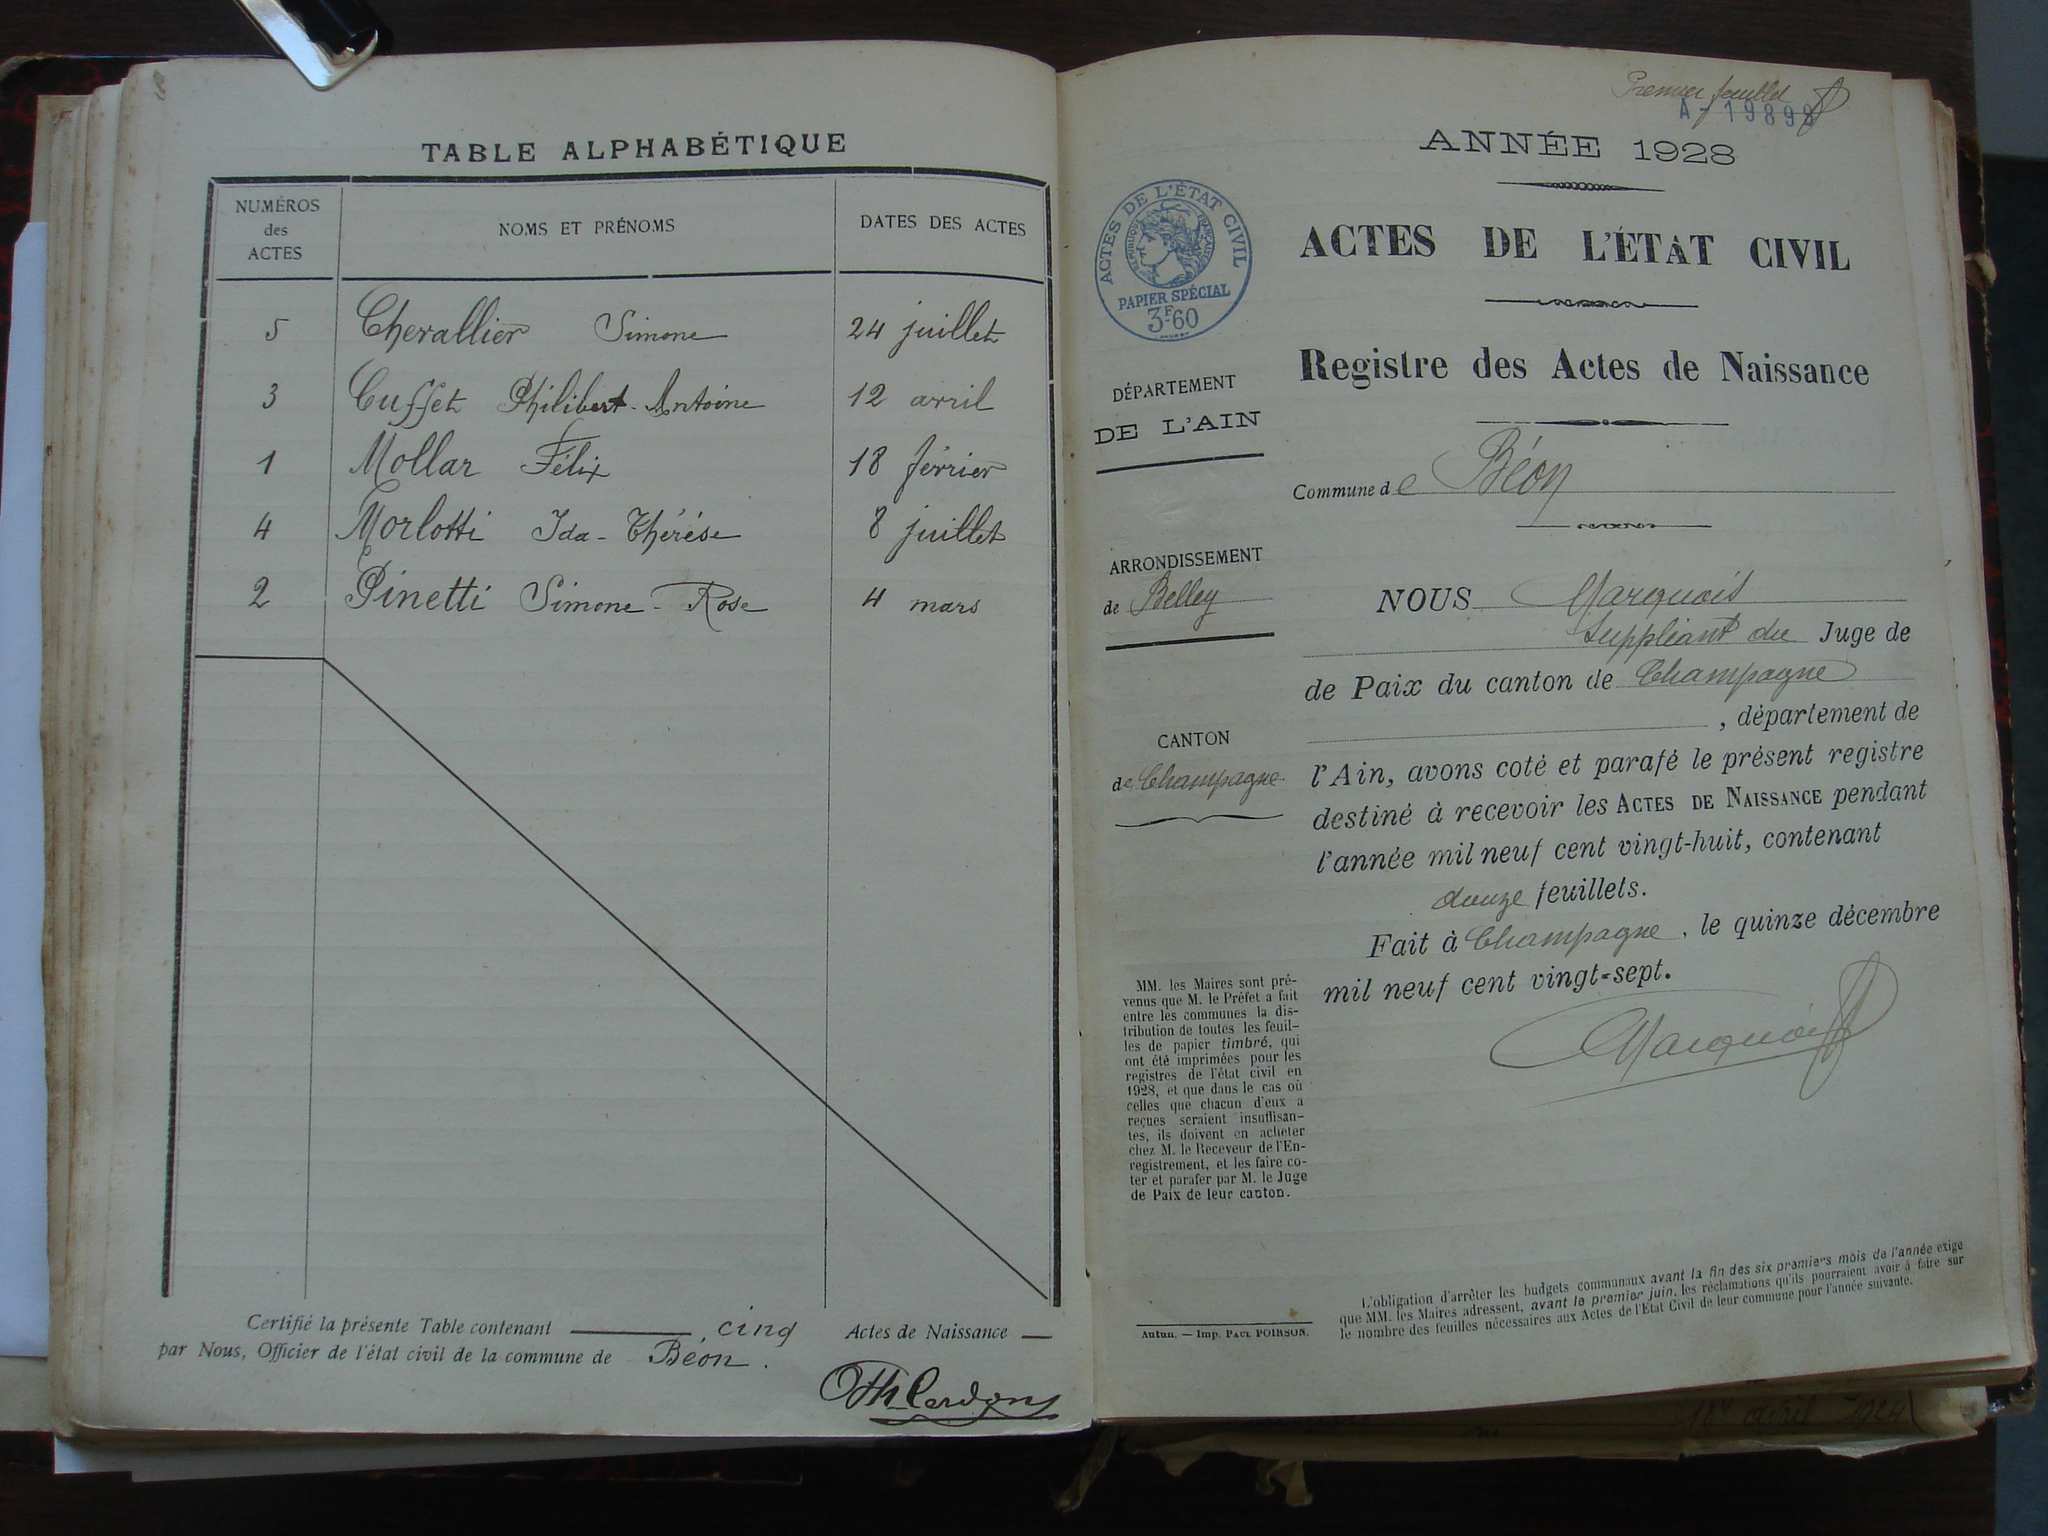 TABLE ALPHABÉTIQUE
NUMÉROS des ACTES NOMS ET PRÉNOMS DATES DES ACTES
5 Chevallier Simone 24 juillet
3 Cuffet Philibert-Antoine 12 avril
1 Mollar Félix 18 février
4 Morlotti Ida-Thérèse 8 juillet
2 Pinetti Simone-Rose 4 mars
Certifié la présente Table contenant cinq Actes de Naissance
par Nous, Officier de l'état civil de la commune de Béon.
Premier feuillet
A-1989
ANNÉE 1928
ACTES DE L'ÉTAT CIVIL
RÉPUBLIQUE FRANÇAISE
PAPIER SPÉCIAL
3F60
ACTES DE L'ÉTAT CIVIL
Registre des Actes de Naissance
DÉPARTEMENT
DE L'AIN
Commune de Béon
ARRONDISSEMENT
de Belley
CANTON
de Champagne
NOUS Marquois
Suppléant du Juge de
de Paix du canton de Champagne
, département de
l'Ain, avons coté et parafé le présent registre
destiné à recevoir les ACTES DE NAISSANCE pendant
l'année mil neuf cent vingt-huit, contenant
douze feuillets.
Fait à Champagne, le quinze décembre
mil neuf cent vingt-sept.
Marquois
MM. les Maires sont pré-
venus que M. le Préfet a fait
entre les communes la dis-
tribution de toutes les feuil-
les de papier timbré, qui
ont été imprimées pour les
registres de l'état civil en
1928, et que dans le cas où
celles que chacun d'eux a
reçues seraient insuffisan-
tes, ils doivent en acheter
chez M. le Receveur de l'En-
registrement, et les faire co-
ter et parafer par M. le Juge
de Paix de leur canton.
Autun. — Imp. PAUL POIRSON.
L'obligation d'arrêter les budgets communaux avant la fin des six premiers mois de l'année exige
que MM. les Maires adressent, avant le premier juin, les réclamations qu'ils pourraient avoir à faire sur
le nombre des feuilles nécessaires aux Actes de l'État Civil de leur commune pour l'année suivante.
avril 1924